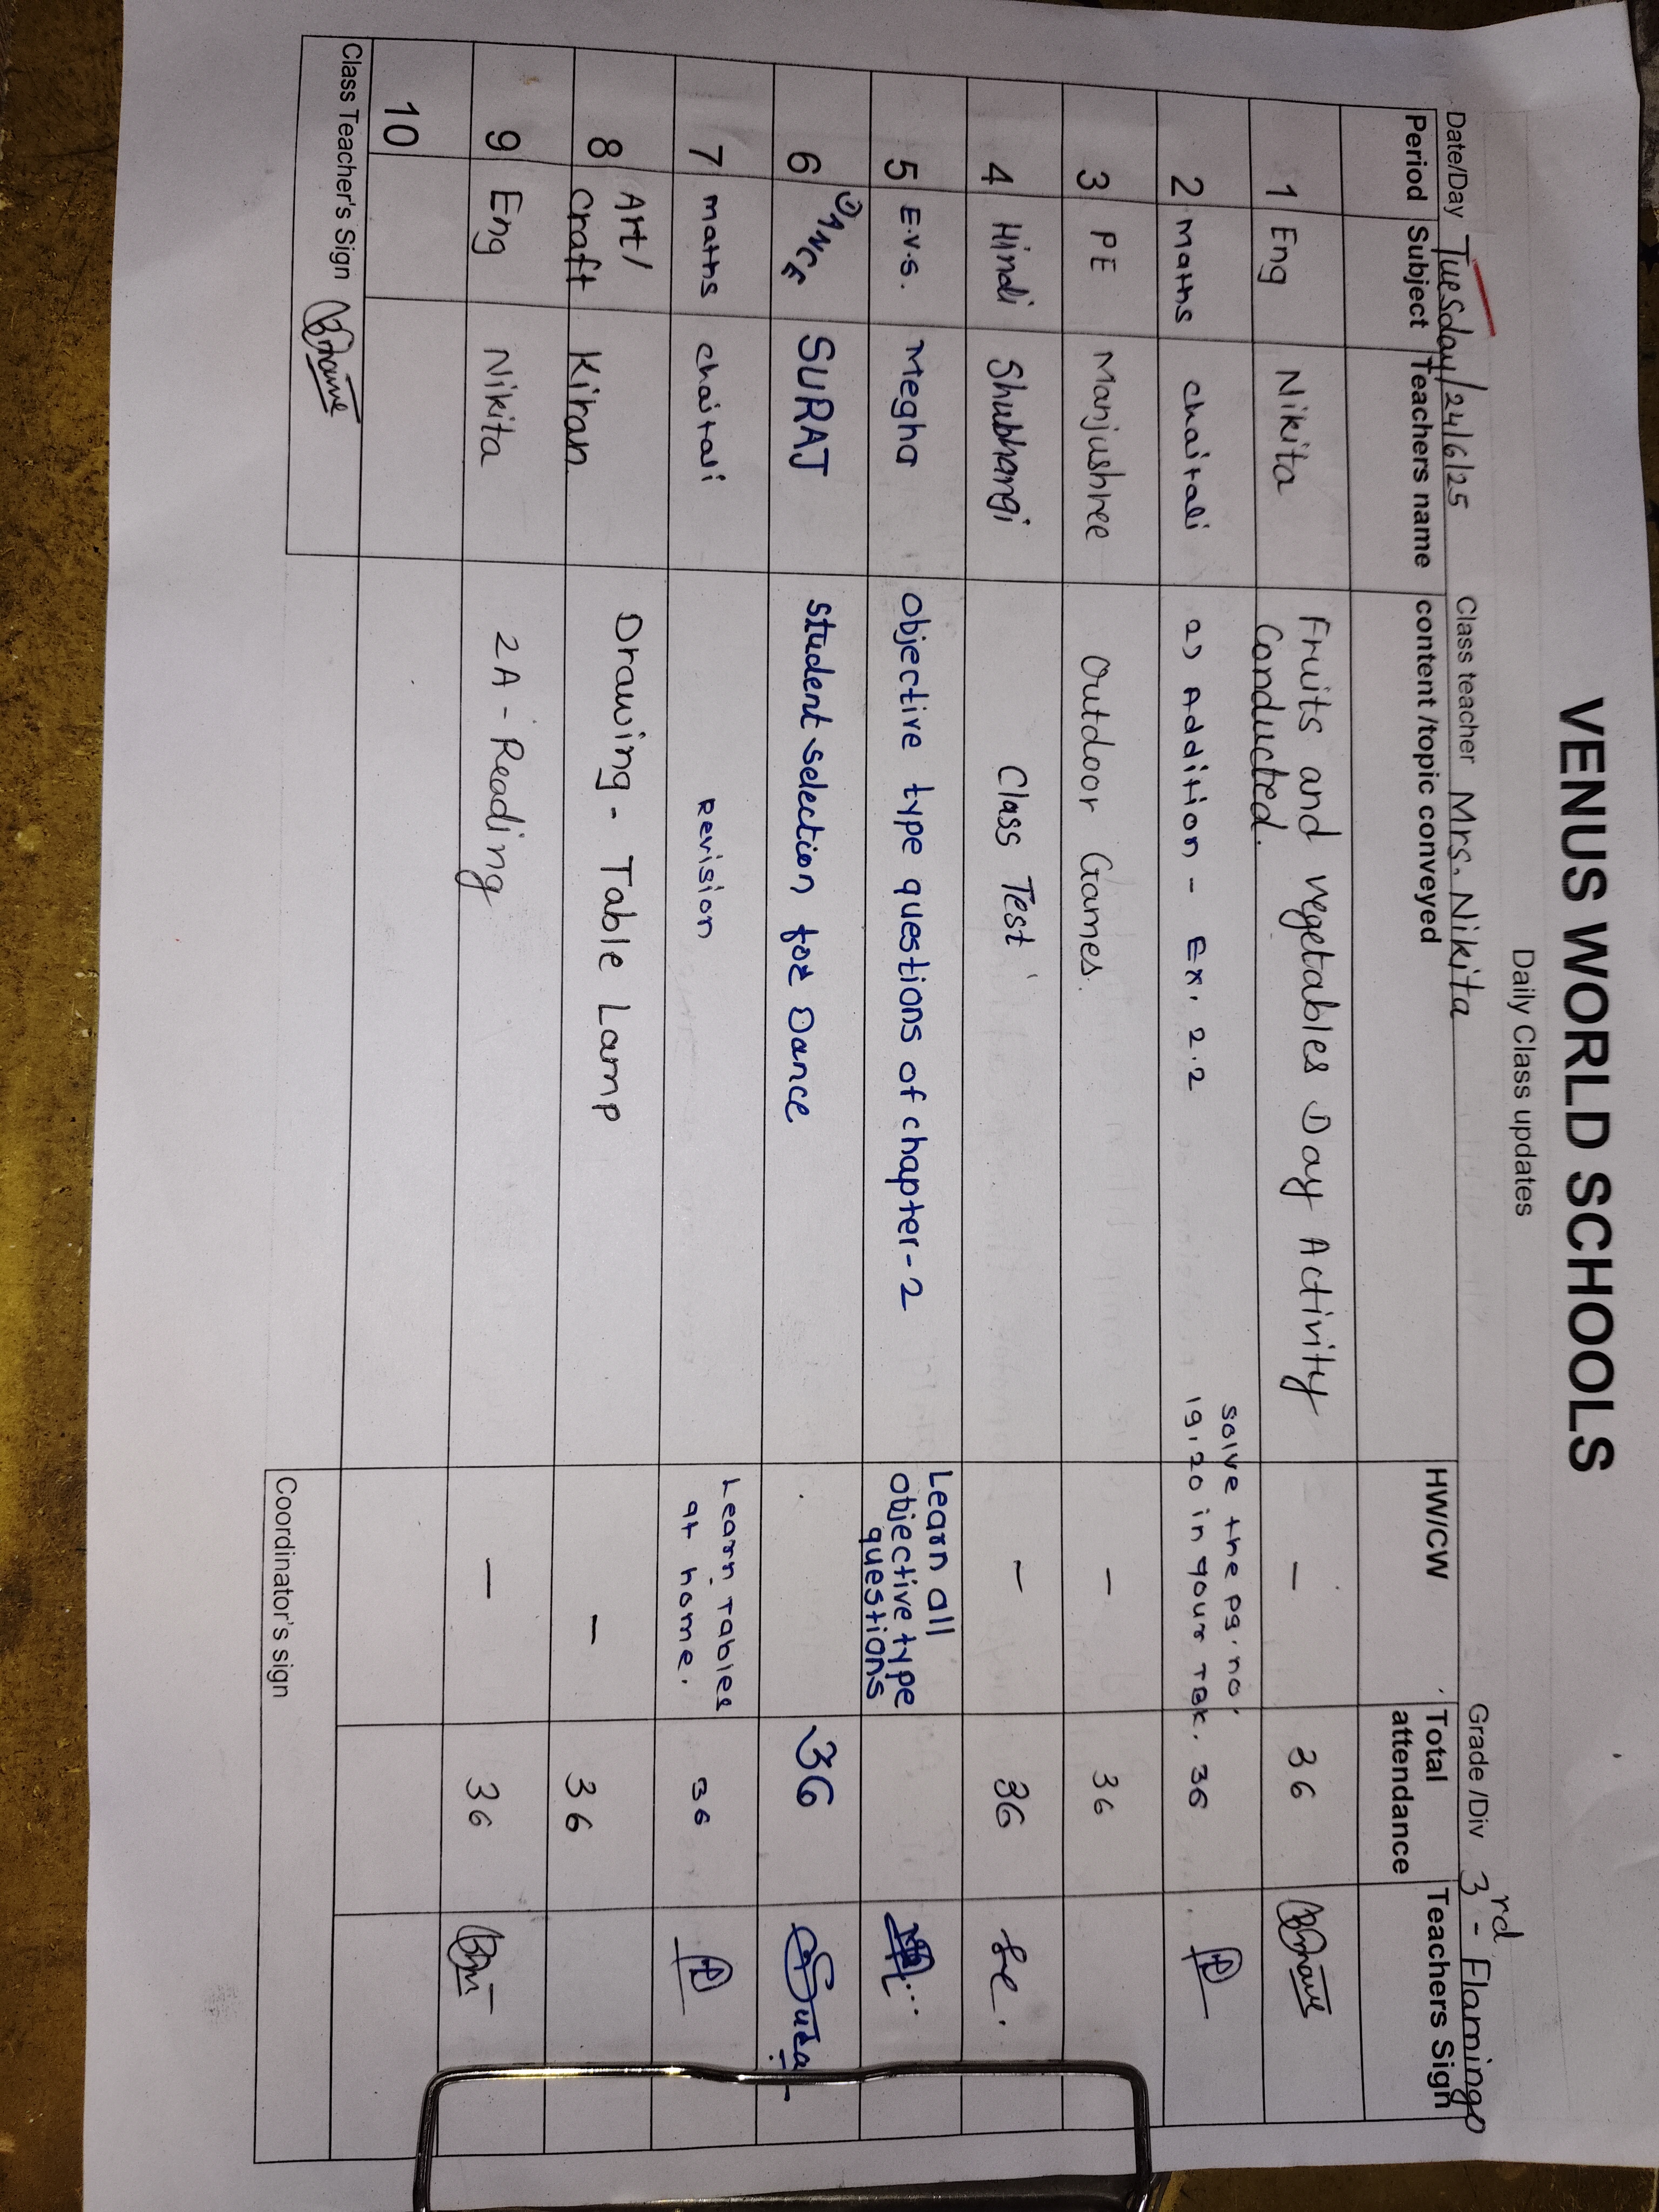 VENUS WORLD SCHOOLS
Daily Class updates
Date/Day Tuesday/24/6/25 Class teacher Mrs. Nikita Grade /Div 3rd - Flamingo
Period Subject Teachers name content /topic conveyed HW/CW Total attendance Teachers Sign
1 Eng Nikita Fruits and vegetables Day Activity Conducted. – 36
2 maths chaitali 2) Addition - Ex. 2.2 solve the pg. no. 19, 20 in your TBK. 36
3 PE Manjushree Outdoor Games. – 36
4 Hindi Shubhangi Class Test – 36
5 E.v.s. Megha objective type questions of chapter-2 Learn all objective type questions
6 DANCE SURAJ student selection for Dance 36
7 maths chaitali Revision Learn Tables at home. 36
8 Art/ Craft Kiran Drawing - Table Lamp – 36
9 Eng Nikita 2A - Reading – 36
10
Class Teacher's Sign
Coordinator's sign